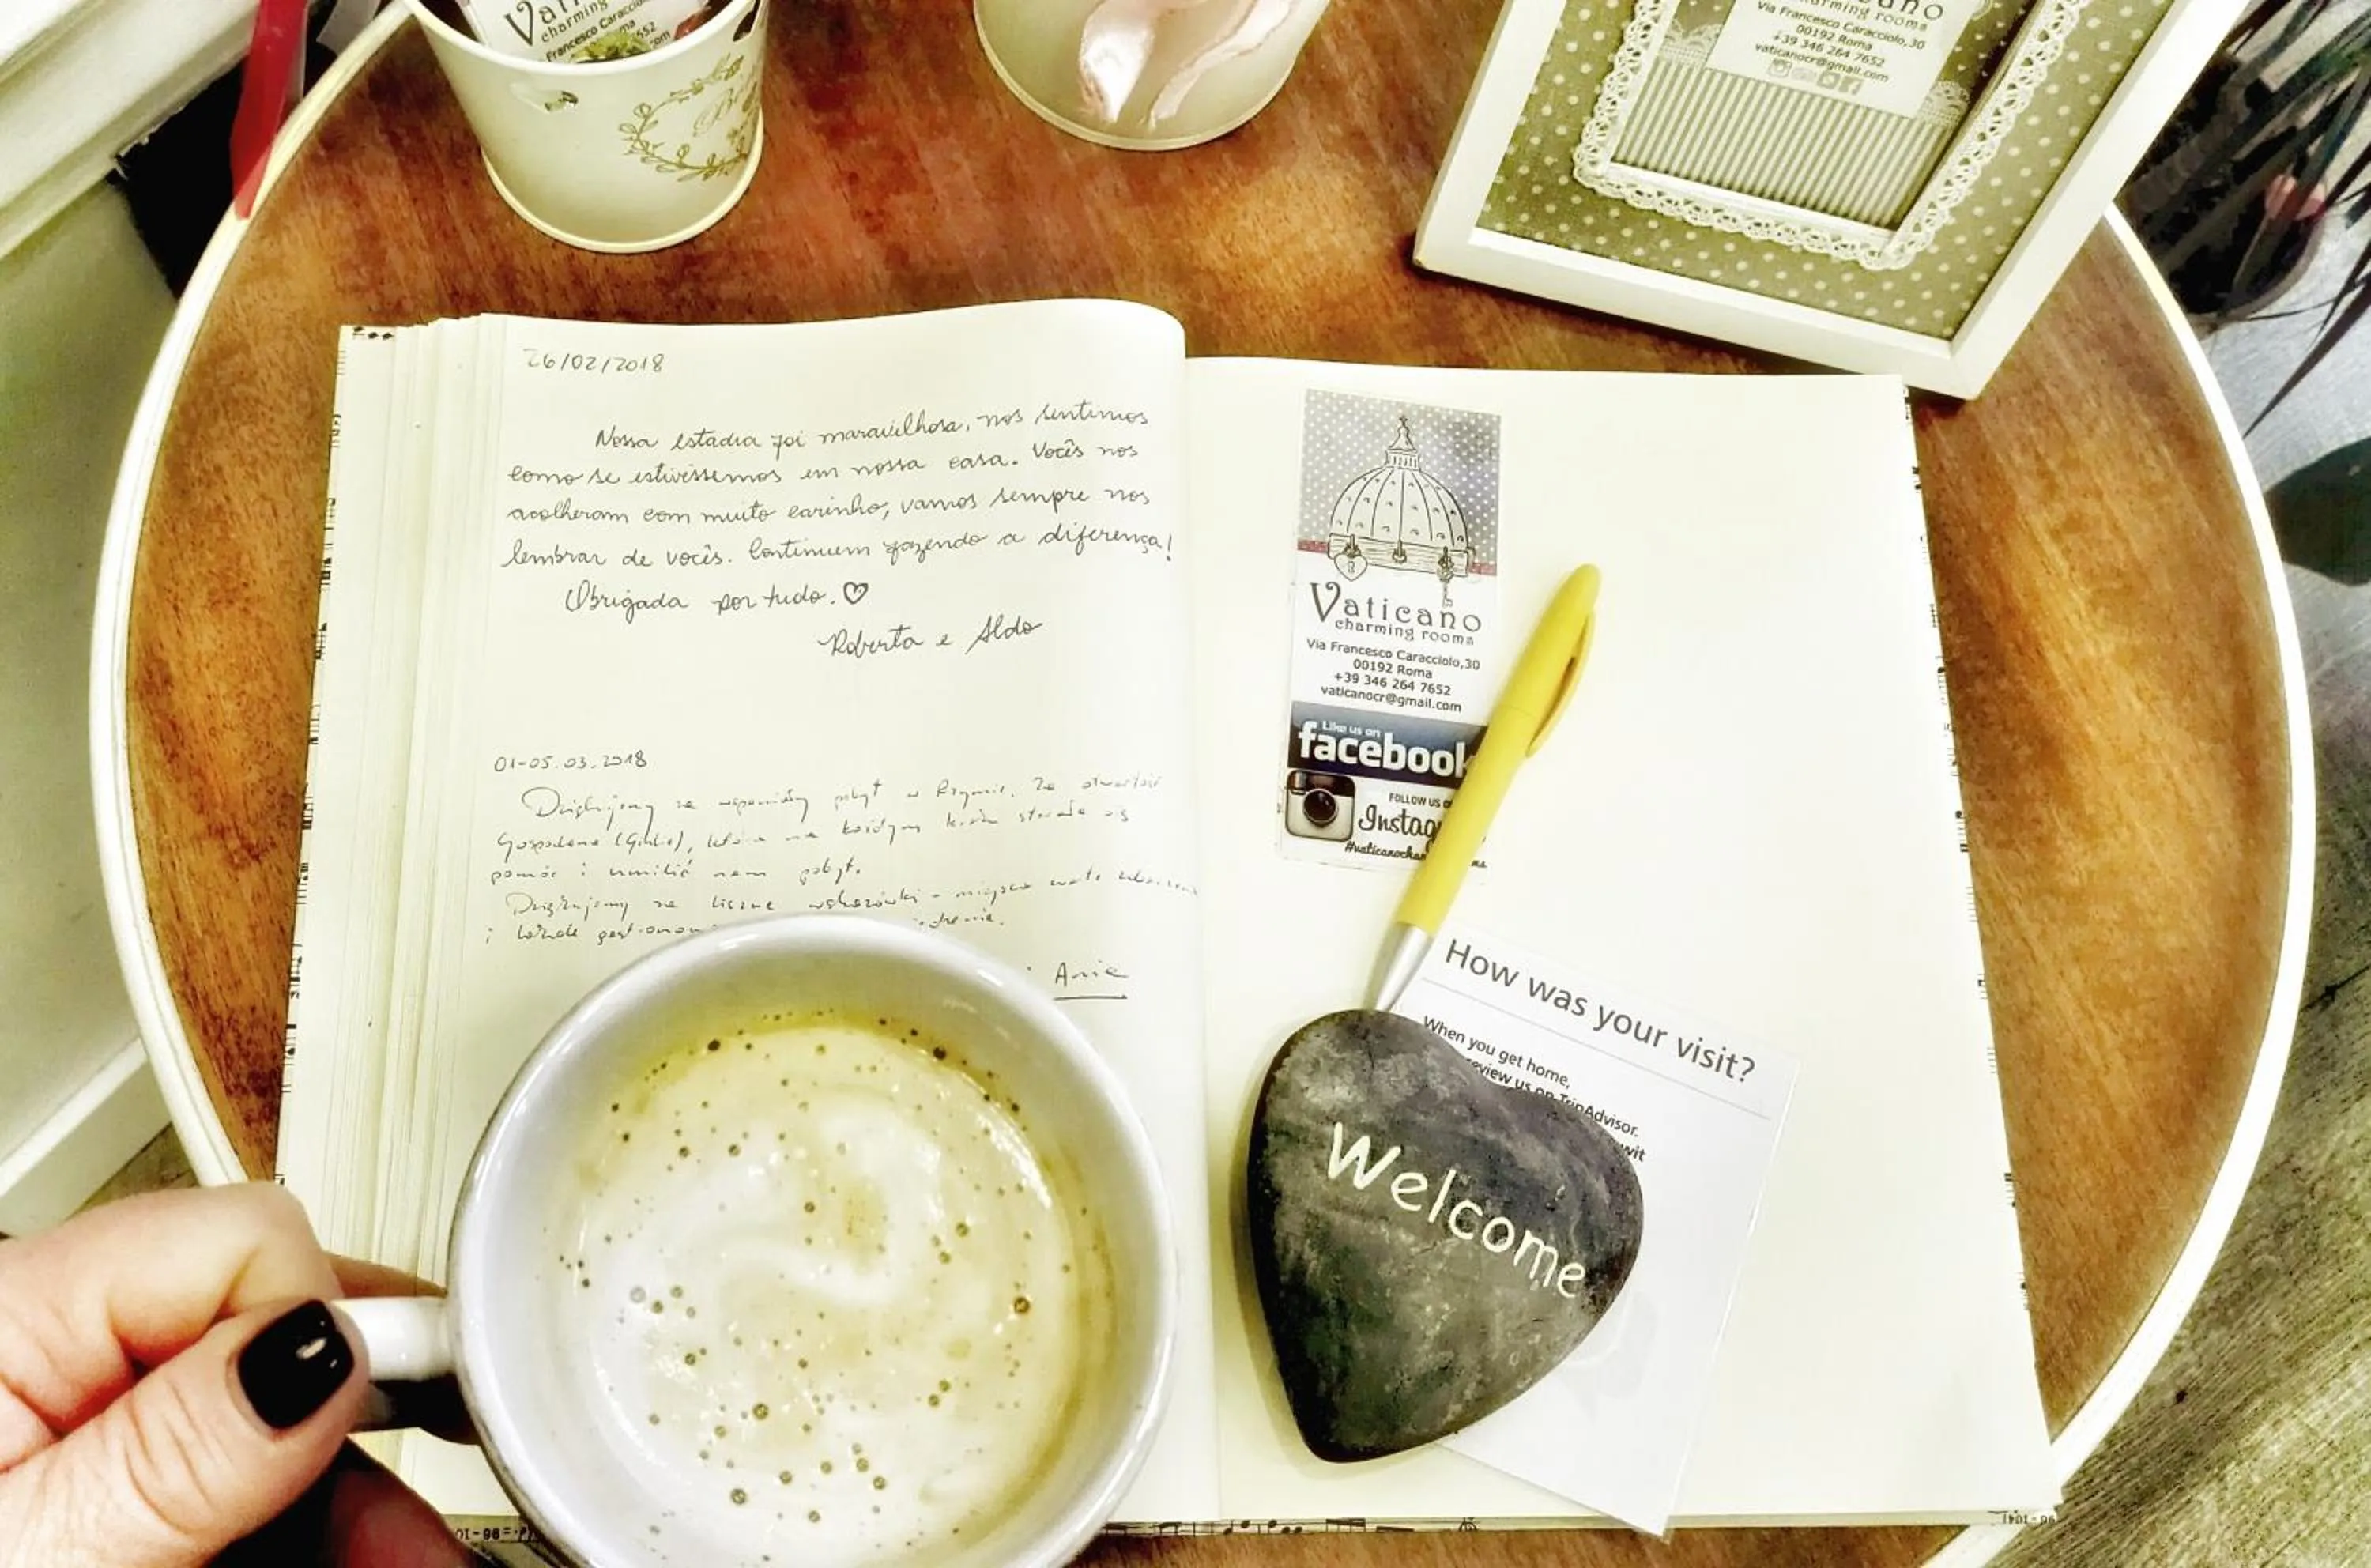 Vati
charming
Francesco Caracciolo
cano
charming rooms
Via Francesco Caracciolo,30
00192 Roma
+39 346 264 7652
vaticanocr@gmail.com
26/02/2018
Nossa estadia foi maravilhosa, nos sentimos
como se estivéssemos em nossa casa. Vocês nos
acolheram com muito carinho, vamos sempre nos
lembrar de vocês. Continuem fazendo a diferença!
Obrigada por tudo. ♡
Roberta e Aldo
01-05.03.2018
Dziękujemy za wspaniały pobyt w Rzymie. Za otwartość
Gospodena (Giulio), która na każdym kroku starała się
pomóc i umilić nam pobyt.
Dziękujemy za liczne wskazówki - miejsca warte zobaczenia
i lokale
Ania
Vaticano
charming rooms
Via Francesco Caracciolo,30
00192 Roma
+39 346 264 7652
vaticanocr@gmail.com
Like us on
facebook
FOLLOW US O
Instag
#vaticanocha
How was your visit?
When you get home,
review us on TripAdvisor.
Welcome